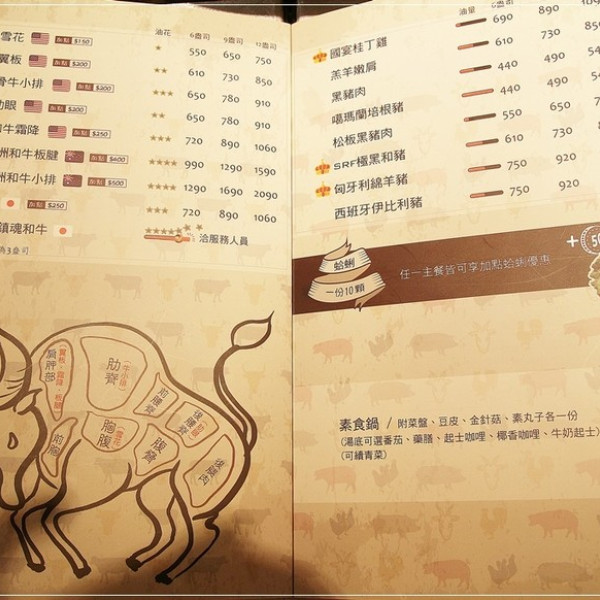 油花 6盎司 9盎司 12盎司
雪花 加點 $150 ★ 550 650 750
翼板 加點 $200 ★★ 610 730 850
骨牛小排 加點 $200 ★★★ 650 780 910
肋眼 加點 $200 ★★ 650 780 910
和牛霜降 加點 $250 ★★★ 720 890 1060
洲和牛板腱 加點 $400 ★★★★ 990 1290 1590
洲和牛小排 加點 $500 ★★★★ 1290 1690 2090
加點 $250 ★★★★ 720 890 1060
鎮魂和牛 洽服務人員
為3盎司
肩胛部
(翼板、霜降、板腱)
肋脊
(牛小排)
前腰脊
後腰脊
後腿肉
前胸
胸腹
(雪花)
腹脅
油量 6盎司
國宴桂丁雞 690 890 1090
羔羊嫩肩 610 730
黑豬肉 440 490 540
噶瑪蘭培根豬 440 490
松板黑豬肉 550 650
SRF極黑和豬 610 730
匈牙利綿羊豬 750 920
西班牙伊比利豬 750 920
蛤蜊
一份10顆
任一主餐皆可享加點蛤蜊優惠
+
素食鍋 / 附菜盤、豆皮、金針菇、素丸子各一份
(湯底可選番茄、藥膳、起士咖哩、椰香咖哩、牛奶起士)
(可續青菜)